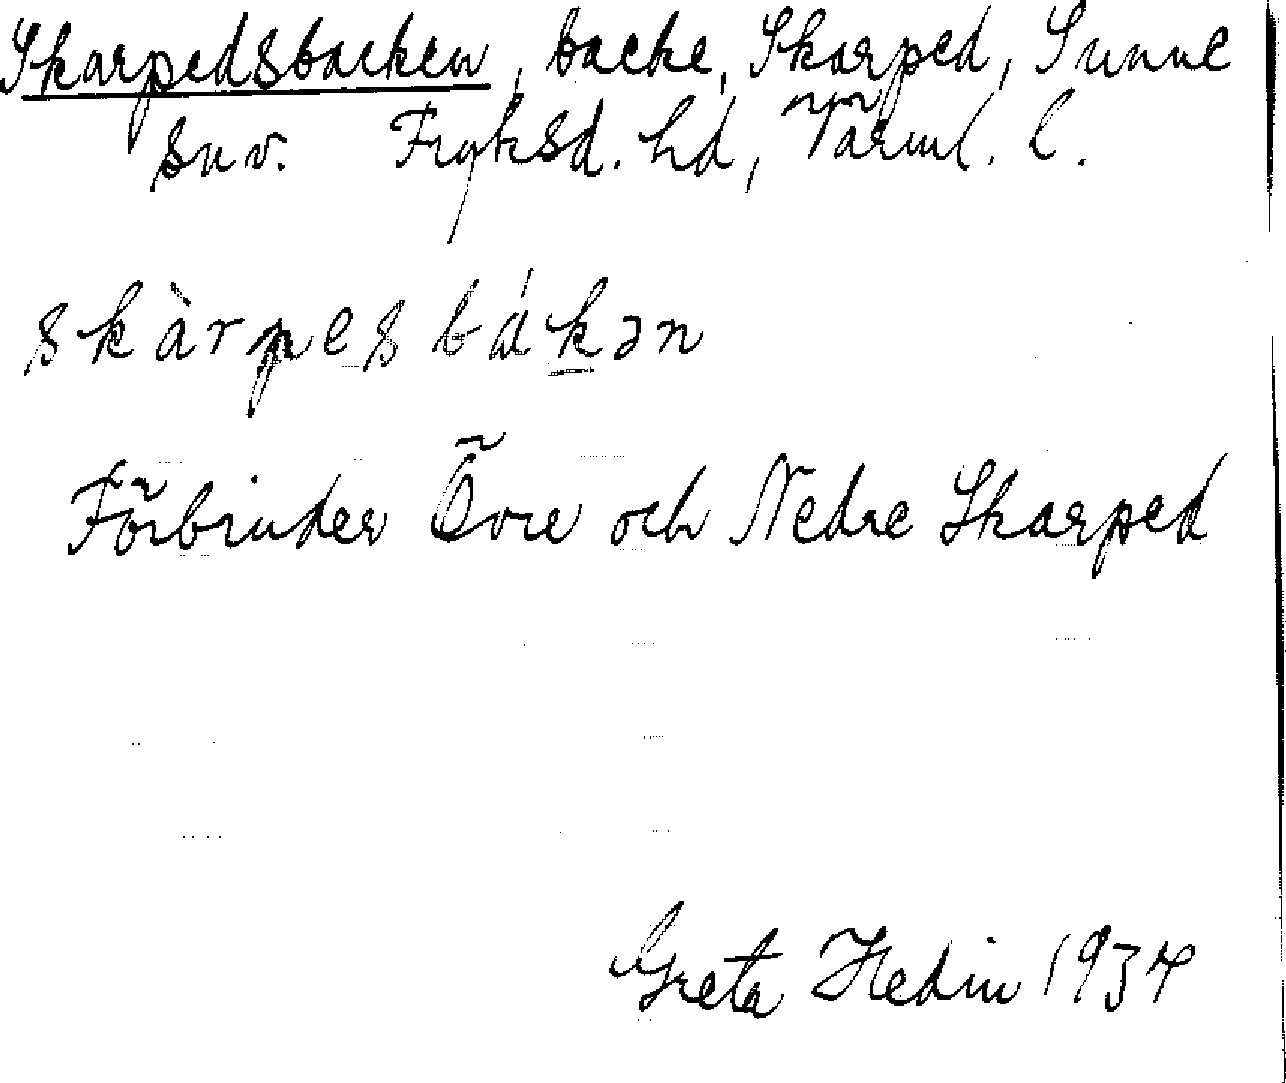 Skarpedsbacken, backe, Skarped, Sunne
snv. Fryksd. hd, Värml. l.
skàrpesbákən
Förbinder Övre och Nedre Skarped
Greta Hedin 1934